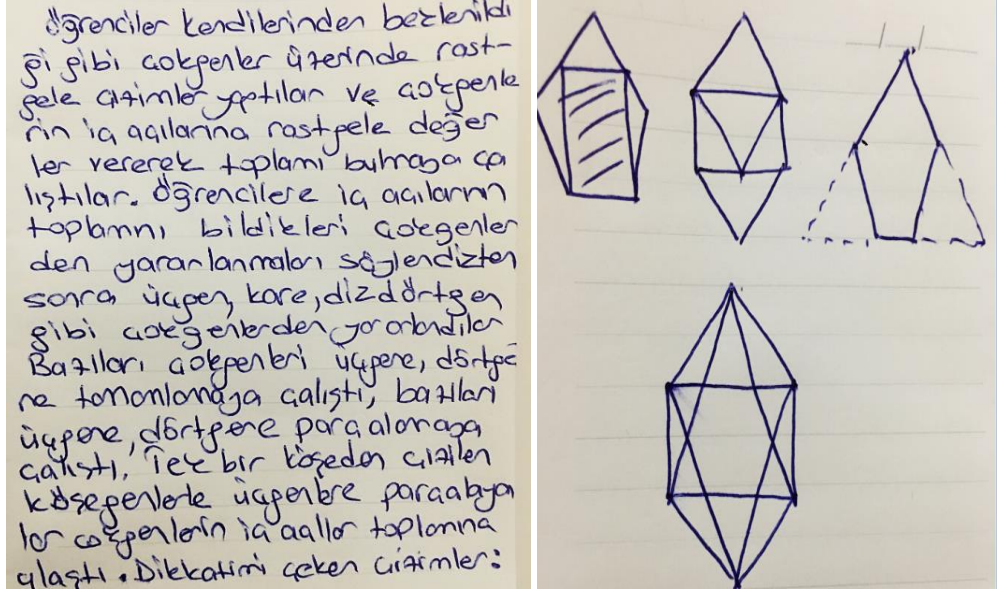 öğrenciler kendilerinden beklenildi
ği gibi çokgenler üzerinde rast-
gele çizimler yaptılar ve çokgenle
rin iç açılarına rastgele değer
ler vererek toplamı bulmaya ça
lıştılar. Öğrencilere iç açılarının
toplamını bildikleri çokgenler
den yararlanmaları söylendikten
sonra üçgen, kare, dikdörtgen
gibi çokgenlerden yararlandılar
Bazıları çokgenleri üçgene, dörtge
ne tamamlamaya çalıştı, bazıları
üçgene, dörtgene parçalamaya
çalıştı. Tek bir köşeden çizilen
köşegenlerle üçgenlere parçalayan
lar çokgenlerin iç açılar toplamına
ulaştı. Dikkatimi çeken çizimler: